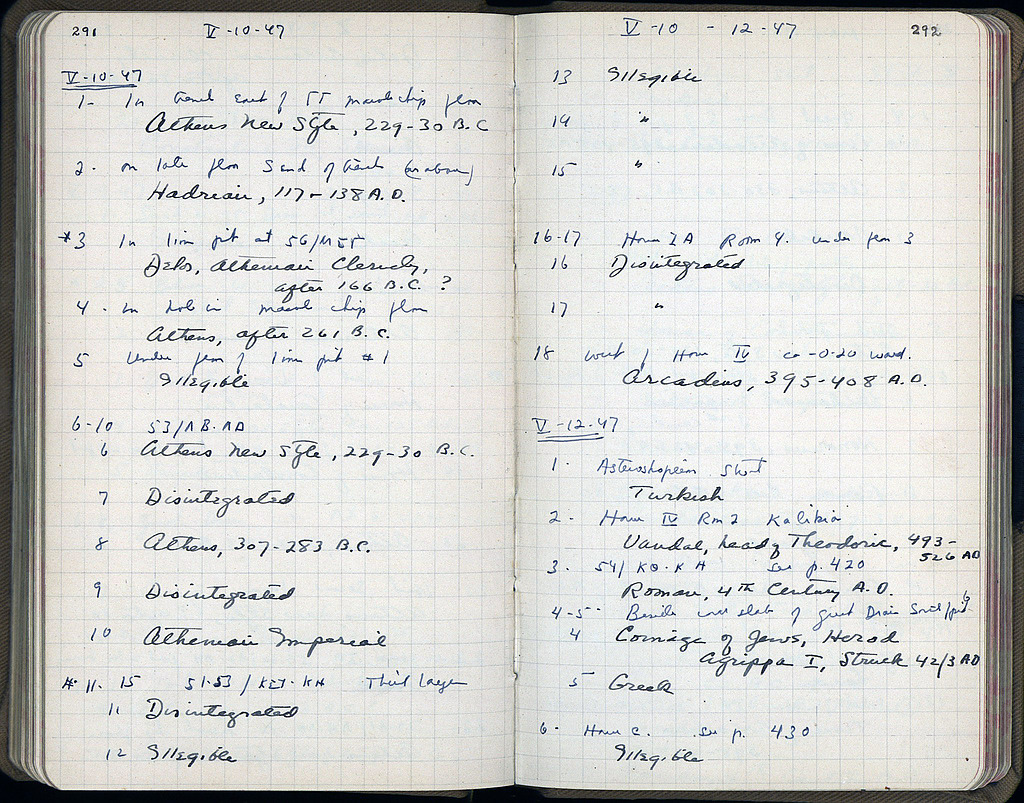 291
V-10-47
V-10-47
1- In trench east of marble chip floor
Athens New Style, 229-30 B.C
2. on late floor S end of trench
Hadrian, 117-138 A.D.
*3 In lime pit at 56/
Delos, Athenian Cleruchy,
after 166 B.C. ?
4. in hole in marble chip floor
Athens, after 261 B.C.
5 Under floor of lime pit #1
Illegible
6-10 53/ΛB-ΛΔ
6 Athens New Style, 229-30 B.C.
7 Disintegrated
8 Athens, 307-283 B.C.
9 Disintegrated
10 Athenian Imperial
11-15 51-53/ Third Layer
11 Disintegrated
12 Illegible
V-10 - 12-47
292
13 Illegible
14 "
15 "
16-17 House IA Room 4. under floor 3
16 Disintegrated
17 "
18 West of House IV ca -0.20
Arcadius, 395-408 A.D.
V-12-47
1. Street
Turkish
2- House IV Rm 2 Kalikia
Vandal, head of Theodoric, 493-
526 AD
3. 54/ΚΘ-ΚΗ see p. 420
Roman, 4th Century A.D.
4-5 Beside cover slab of great Drain
4 Coinage of Jews, Herod
Agrippa I, Struck 42/3 AD
5 Greek
6- House C. see p. 430
Illegible